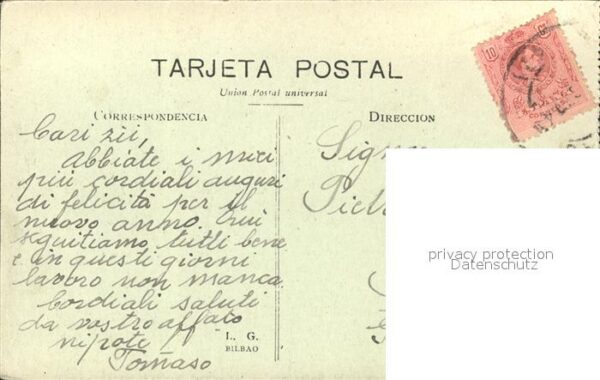 10 Cs
TARJETA POSTAL
Union Postal universal
CORRESPONDENCIA
DIRECCION
Cari zii,
Abbiate i miei
più cordiali auguri
di felicità per il
nuovo anno. Qui
seguitiamo tutti bene
e in questi giorni
lavoro non manca.
Cordiali saluti
da vostro affato
nipote
Tomaso
L. G.
BILBAO
Signor
Piet
privacy protection
Datenschutz